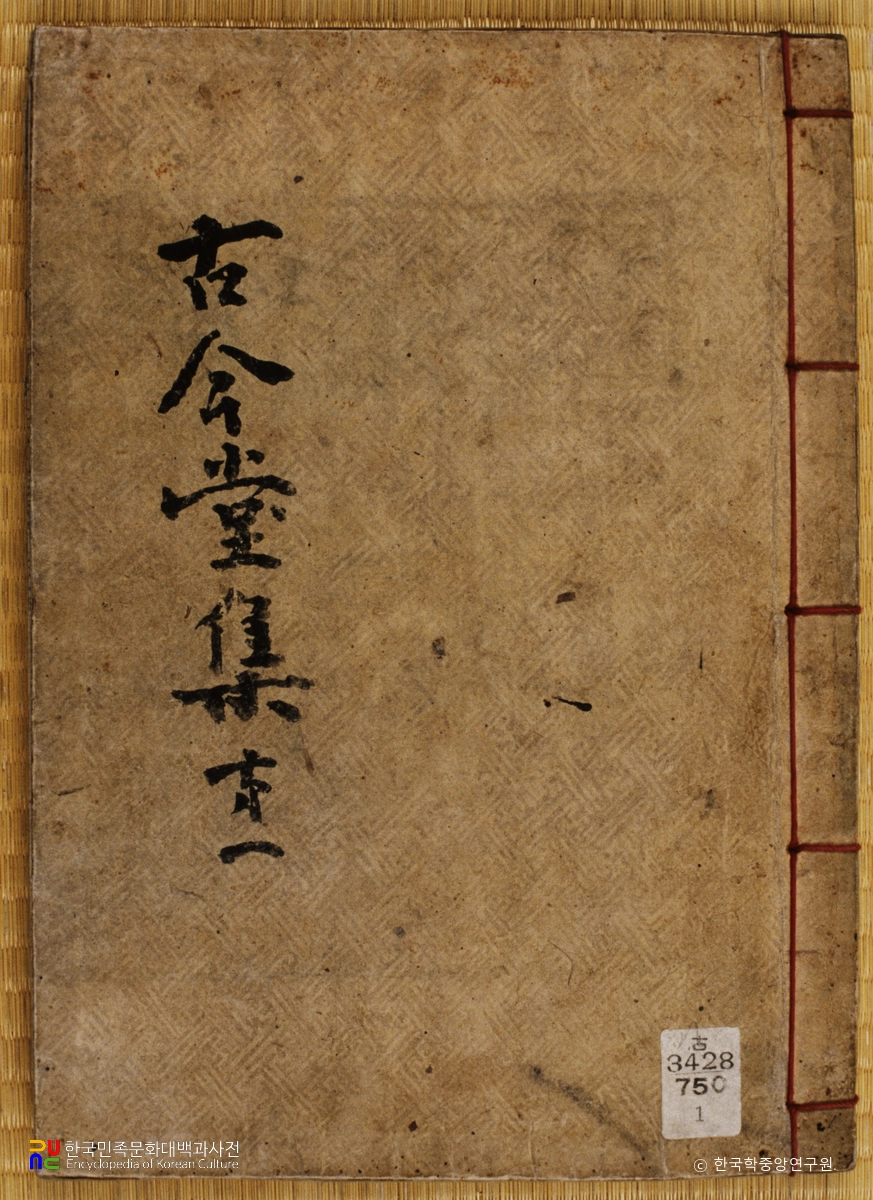 古今堂集 第一
古
3428
750
1
한국민족문화대백과사전
Encyclopedia of Korean Culture
ⓒ 한국학중앙연구원